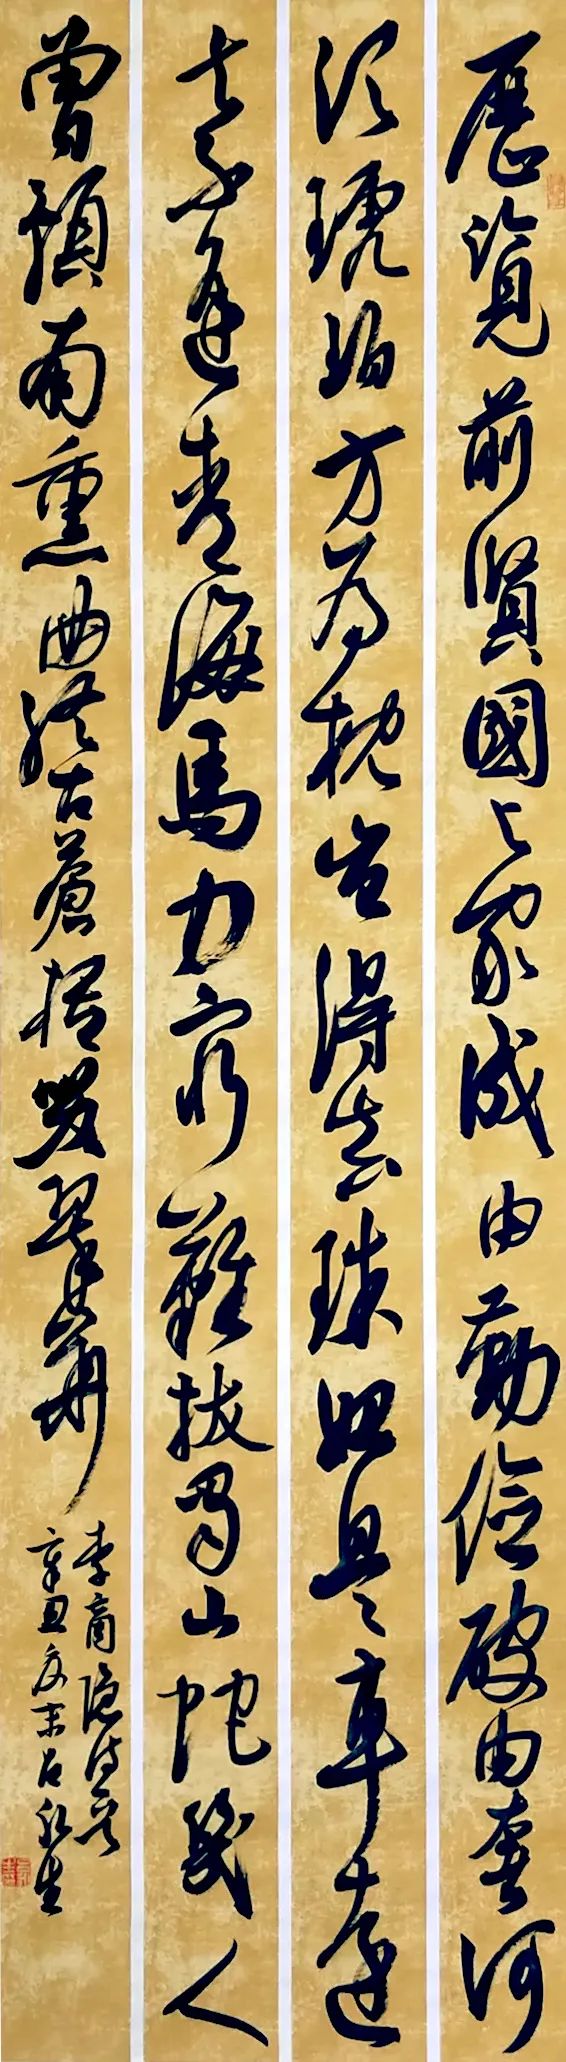 歷覽前賢國与家成由勤儉破由奢何
須琥珀方為枕豈得真珠始是車運
去不逢青海馬力窮難拔蜀山蛇幾人
曾預南熏曲終古蒼梧哭翠華
李商隱詩
辛丑夏末